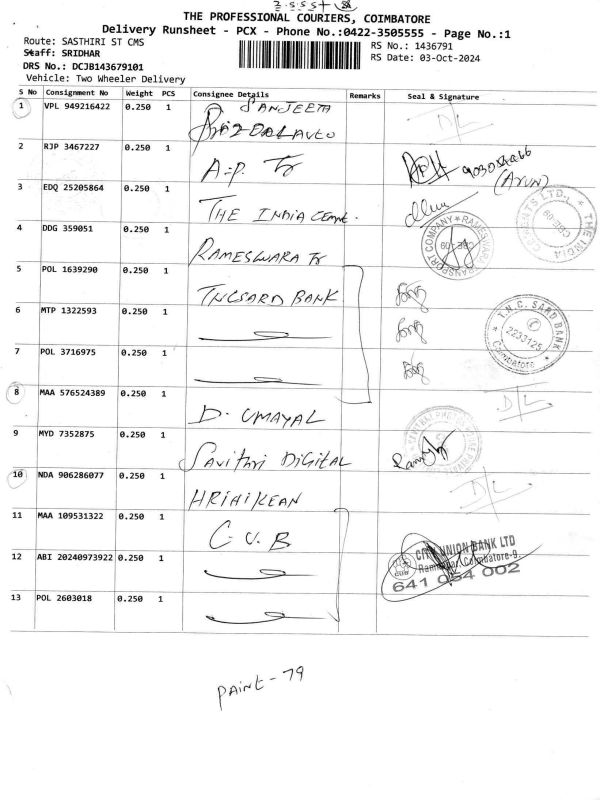 THE PROFESSIONAL COURIERS, COIMBATORE
Delivery Runsheet - PCX - Phone No.:0422-3505555 - Page No.:1
Route: SASTHIRI ST CMS
RS No.: 1436791
Staff: SRIDHAR
RS Date: 03-Oct-2024
DRS No.: DCJB143679101
Vehicle: Two Wheeler Delivery
S No Consignment No Weight PCS Consignee Details Remarks Seal & Signature
1 VPL 949216422 0.250 1 SANJEETA
D/L
2 RJP 3467227 0.250 1 A.P. Tr
(ARUN)
3 EDQ 25205864 0.250 1 THE INDIA Cemt.
THE INDIA CEMENTS LTD. CBE-09
4 DDG 359051 0.250 1 RAMESWARA Tr
RAMESWARA TRANSPORT COMPANY CBE-09
5 POL 1639290 0.250 1 TNCSARD BANK
6 MTP 1322593 0.250 1
T.N.C. SARD BANK 2233125 Coimbatore
7 POL 3716975 0.250 1
8 MAA 576524389 0.250 1 D. UMAYAL
D/L
9 MYD 7352875 0.250 1 Savithri DIGITAL
10 NDA 906286077 0.250 1
D/L
11 MAA 109531322 0.250 1 C.U.B
CITY UNION BANK LTD
Ramnagar, Coimbatore-9.
641 054 002
12 ABI 20240973922 0.250 1
13 POL 2603018 0.250 1
PAINT - 79